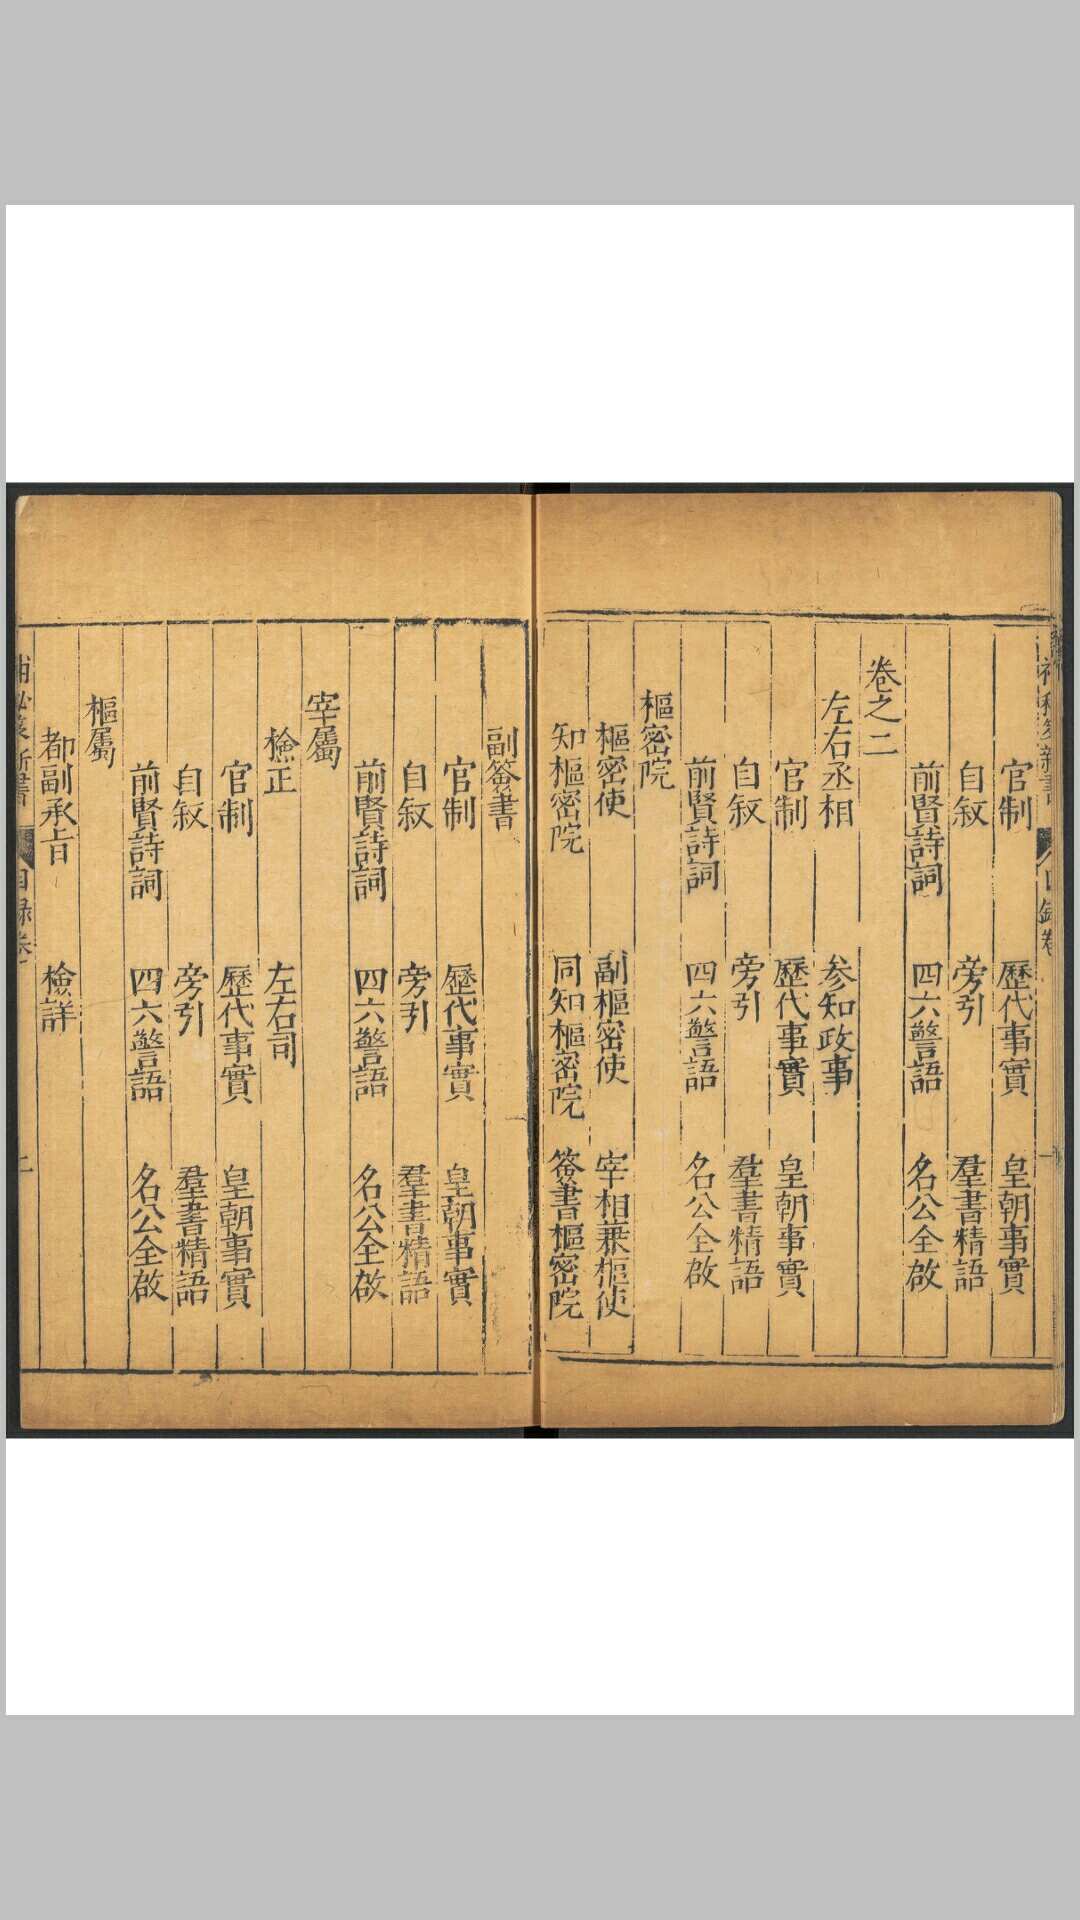 官制 歷代事實 皇朝事實
自叙 旁引 羣書精語
前賢詩詞 四六警語 名公全啟
卷之二
左右丞相 参知政事
官制 歷代事實 皇朝事實
自叙 旁引 羣書精語
前賢詩詞 四六警語 名公全啟
樞密院
樞密使 副樞密使 宰相兼樞使
知樞密院 同知樞密院 簽書樞密院
副簽書
官制 歷代事實 皇朝事實
自叙 旁引 羣書精語
前賢詩詞 四六警語 名公全啟
宰屬
檢正 左右司
官制 歷代事實 皇朝事實
自叙 旁引 羣書精語
前賢詩詞 四六警語 名公全啟
樞屬
都副承旨 檢詳
新書 目録卷 二